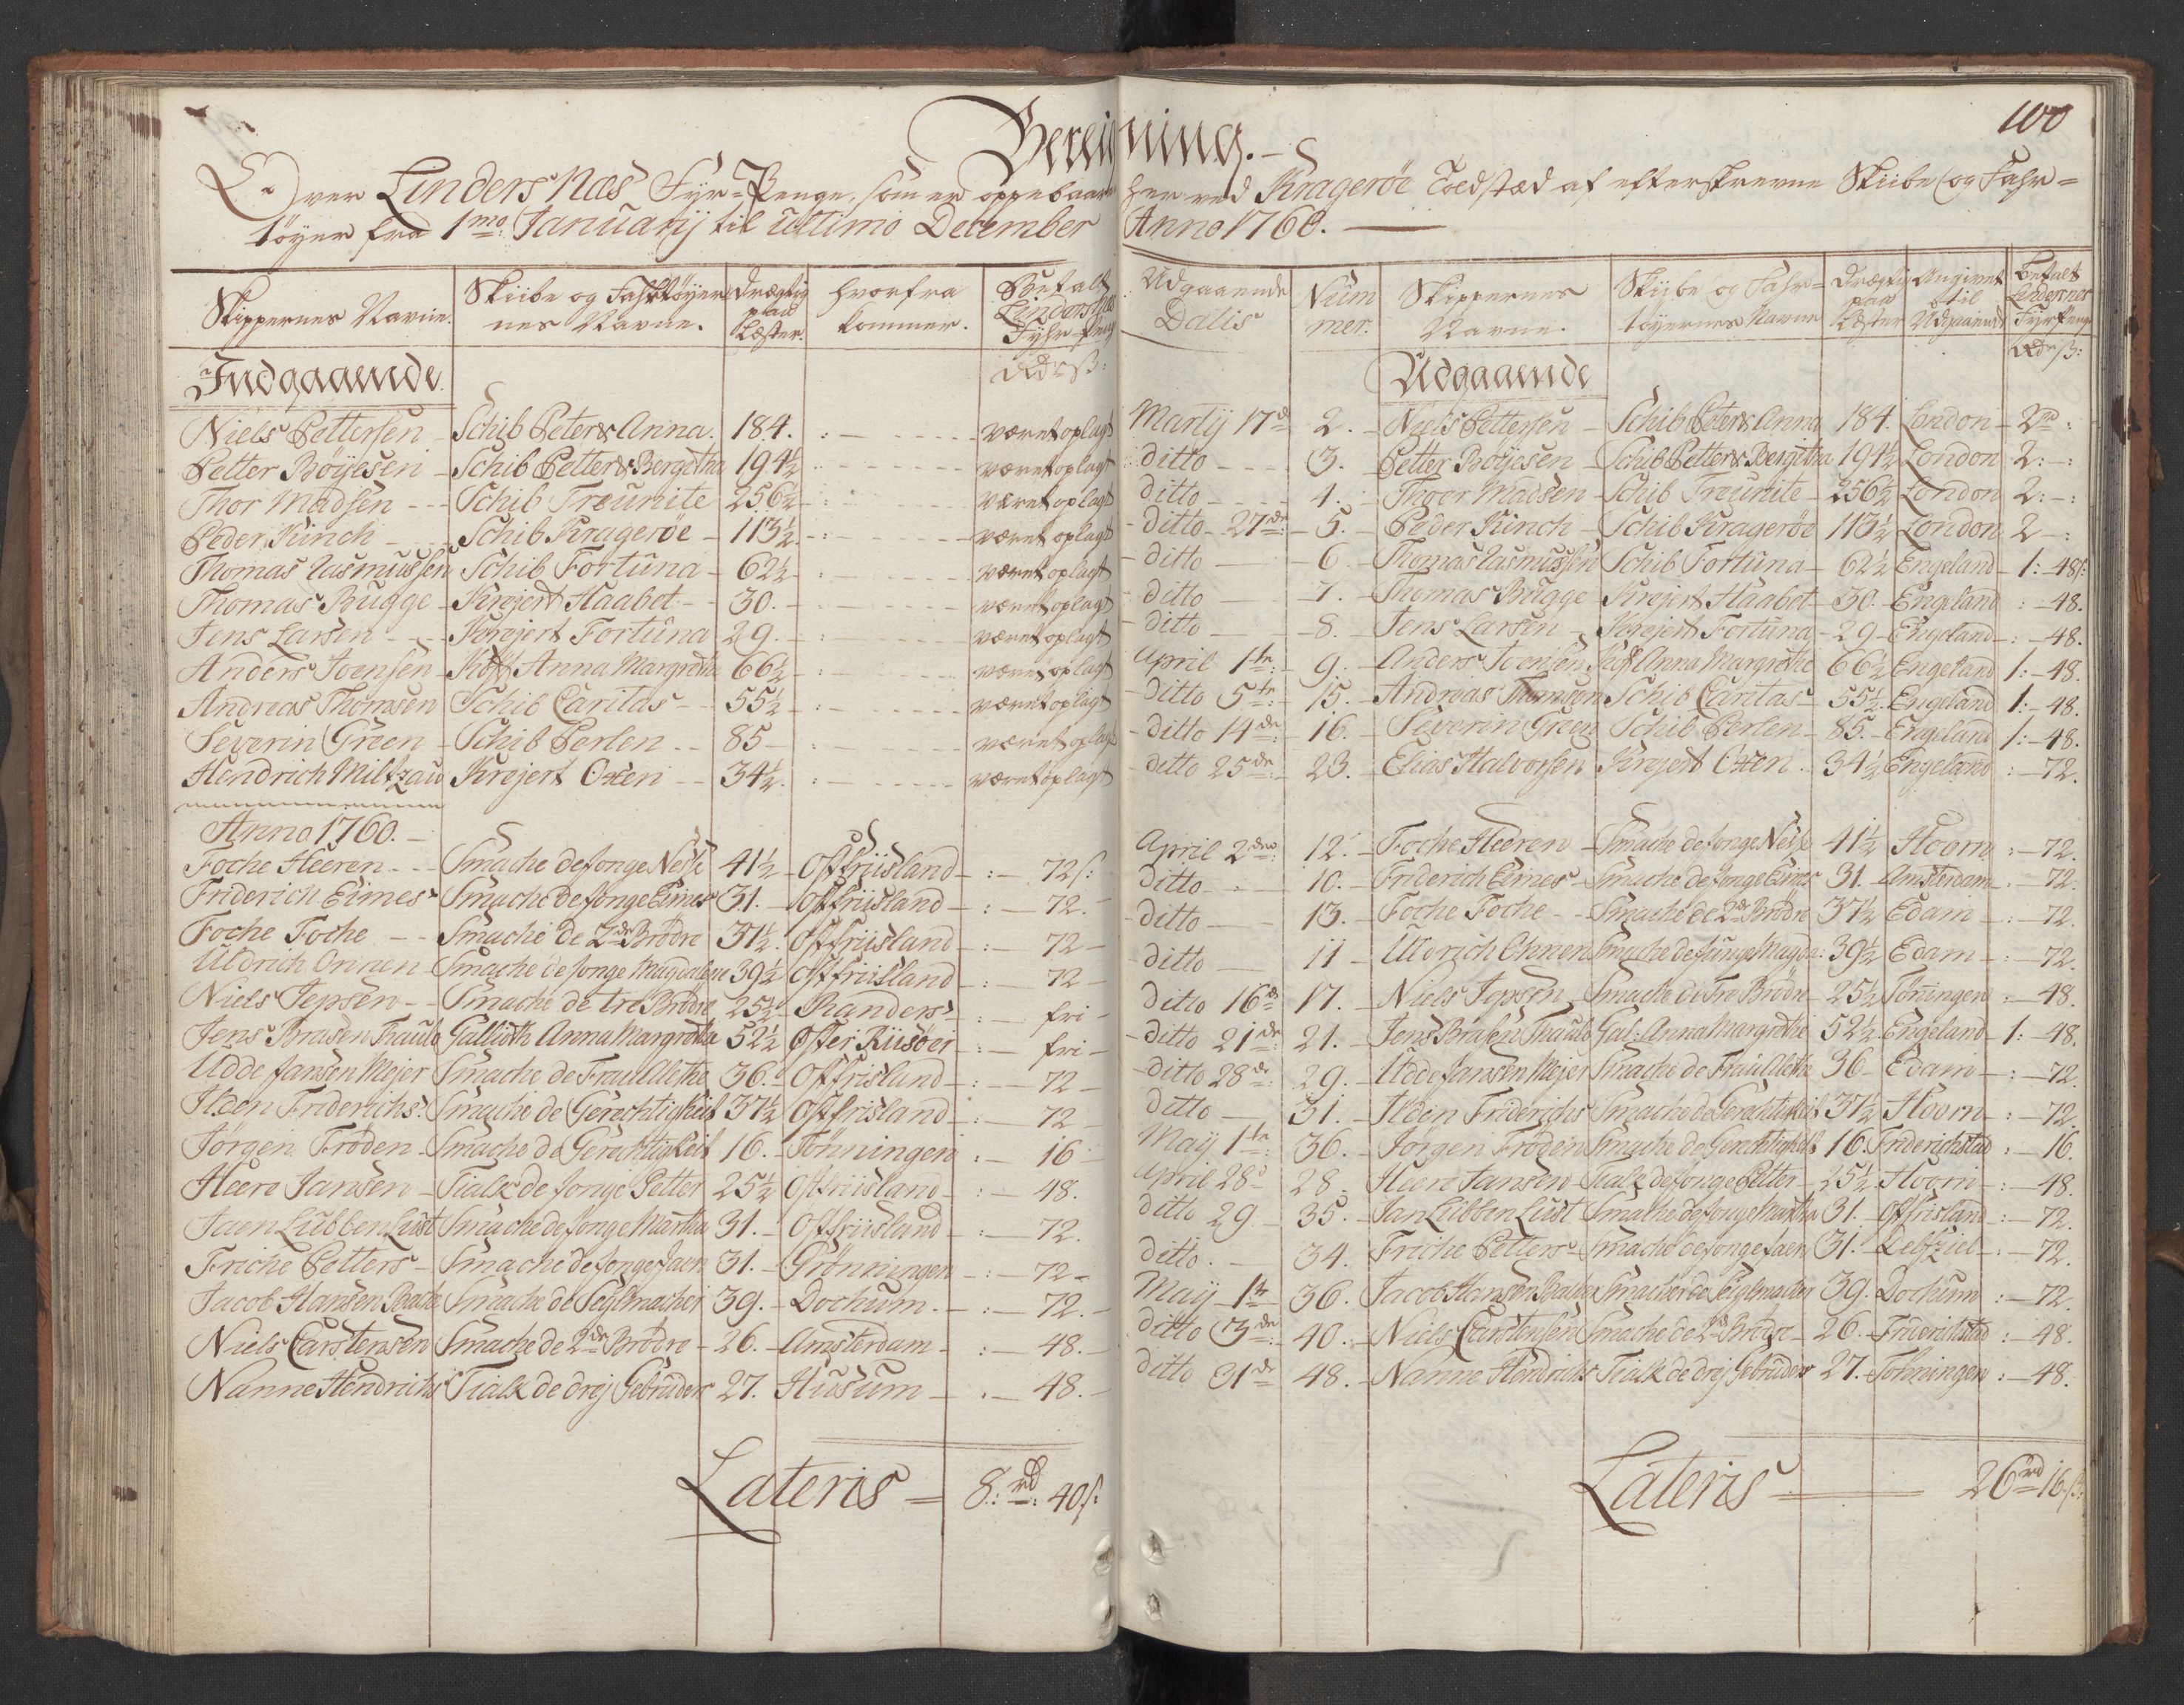 100
Bereigning.
Over Linders Næs Fyr-Penge, som er oppebaaren her ved Kragerøe Toldsted af efterskrevne Skiibe og Fahr=
tøyer fra 1mo: Januarij til ultimo December Anno 1760.
Skippernes Navne. Skiibe og Fahrtøyernes Navne. Drægtig paa Læster. Hvorfra kommer. Betalt Lindersnæs Fyhr-Peng
Rdr ß:
Indgaaende.
Niels Pettersen Schib Peter & Anna. 184. været oplagt
Petter Böÿesen Schib Petter & Bergetha 194½ været oplagt
Thor Madsen Schib Treunite 256½ været oplagt
Peder Kinch Schib Kragerøe 113½ været oplagt
Thomas Rasmussen Schib Fortuna 62½ været oplagt
Thomas Bugge Krejert Haabet 30. været oplagt
Jens Larsen Krejert Fortuna 29. været oplagt
Anders Joensen Anna Margretha 66½ været oplagt
Andreas Thomsen Schib Caritas 55½ været oplagt
Severin Green Schib Perlen 85 været oplagt
Hendrich Miltzau Krejert 34½. været oplagt
Anno 1760.
Foche Heeren Smache de Jonge Nesse 41½ Ostfriisland 72ß:
Friderich Eimes Smache de Jonge Eimes 31. Ostfriisland 72.
Foche Foche Smache de 2de Brødre 37½. Ostfriisland 72
Uldrich Onnen Smache de Jonge Magdalene 39½ Ostfriisland 72
Niels Jepsen Smache de tre Brødre 25½ Randers fri
Jens Brasen Traulb Gallioth Anna Margretha 52½ Øster Riisøer fri
Udde Jansen Mejer Smache de Frau Alethe 36. Ostfrisland 72
Ilden Friderichs: Smache de Gerechtigkeit 37½ Ostfrisland 72
Jørgen Frøden Smache de Gerechtigkeit 16. Tönningen 16
Heere Jansen Tialk de Jonge Petter 25½ Ostfriisland 48.
Jaen Lubben Lust Smache de Jonge Martha 31. Ostfriisland 72.
Friche Petters Smache de Jonge Jaen 31. Grönningen 72
Jacob Hansen Smache de Seglmacher 39. Dochum. 72.
Niels Carstensen Smache de 2de Brødre 26. Amsterdam 48.
Nanne Hendrichs Tialk de drej Gebruder 27. Husum 48.
Lateris 8rd: 40ß:
Udgaaende Datis Nummer. Skippernes Navne. Skiibe og Fahrtøyernes Navne Drægtig paa Læster Angivet til Udgaaende Betalt Lindersnes Fyrpenge
Rdr ß:
Udgaaende
Martij 17d 2. Niels Pettersen Schib Peter & Anna 184. London 2rd:
ditto 3. Petter Böÿesen Schib Petter & Bergetha 194½ London 2:
ditto 4. Thoer Madsen Schib Treunite 256½ London 2:
ditto 27de 5. Peder Kinch Schib Kragerøe 113½ London 2
ditto 6. Thomas Rasmussen Schib Fortuna 62½ Engeland 1: 48ß:
ditto 7. Thomas Bugge Krejert Haabet 30. Engeland 48.
ditto 8. Jens Larsen Krejert Fortuna 29 Engeland 48.
April 1te 9. Anders Joensen Anna Margrethe 66½ Engeland 1: 48.
ditto 5te 15. Andreas Thomsen Schib Caritas 55½. Engeland 1: 48.
ditto 14de 16. Severin Green Schib Perlen 85. Engeland 1: 48.
ditto 25de 23. Elias Halvorsen Krejert 34½ Engeland 72.
April 2den 12. Foche Heeren Smache de Jonge Nesse 41½ Hoorn 72.
ditto 10. Friderich Eimes Smache de Jonge Eimes 31. Amsterdam 72.
ditto 13. Foche Foche Smache de 2de Brødre 37½ Edam 72
ditto 11 Uldrich Onnen Smache de Junge Magda: 39½ Edam 72.
ditto 16d 17. Niels Jepsen Smache de Tre Brödre 25½ Tönningen 48.
ditto 21de 21. Jens Brasen Traulb Gal: Anna Margrethe 52½. Engeland 1: 48.
ditto 28de 29. Udde Jansen Mejer Smache de Frau Alethe 36 Edam 72.
ditto 31. Ilden Friderichs Smache de Gerechtigkeit 37½ Hoorn 72.
Maij 1te 36. Jørgen Frøden Smache de Gerechtigkeit 16. Friderichstad 16.
April 28d 28. Heere Jansen Tialk de Jonge Petter 25½ Hoorn 48.
ditto 29. 35. Jan Lübben Lust Smache de Jonge Martha 31. Ostfrisland 72.
ditto. 34. Friche Petters Smache de Jonge Jaen 31. Delfziel 72.
Maij 1te 36. Jacob Hansen Smacher de Seiglmacher 39. Dochum 72.
ditto 3de 40. Niels Carstensen Smache de 2d Brødre 26. Friderichstad 48.
ditto 31de 48. Nanne Hendrichs Tialk de drej Gebruder 27. Tönningen 48.
Lateris 26rd 16ß: